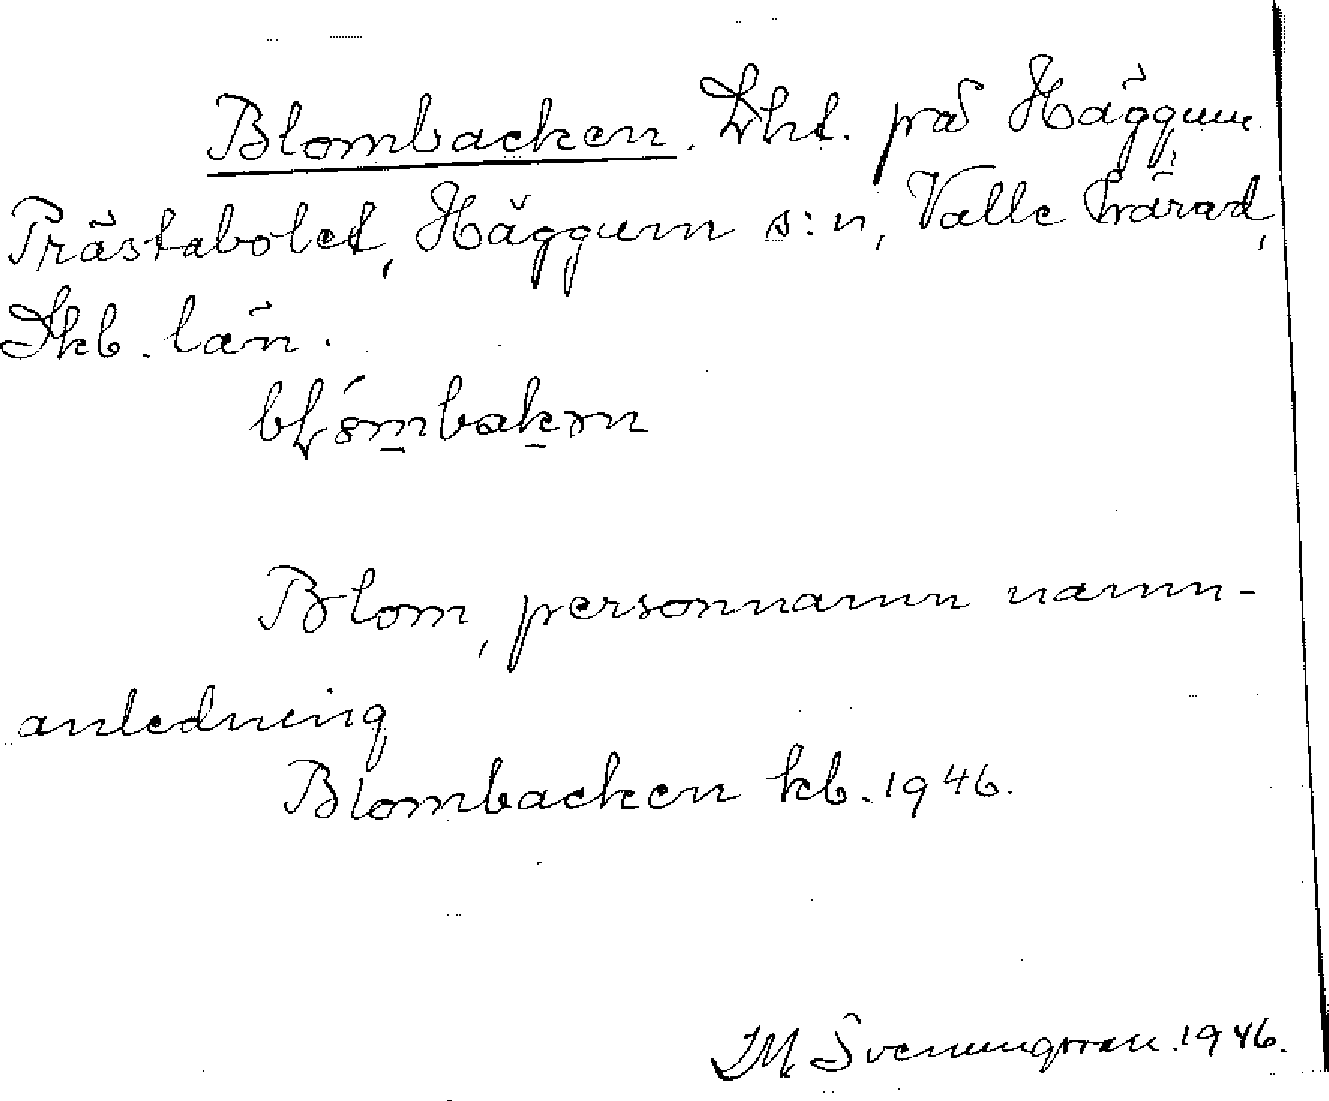 Blombacken. Lht. på Häggum
Prästabolet, Häggum s:n, Valle härad,
Skb. län.
Blom, personnamn namn-
anledning
Blombacken kb. 1946.
Svenungsson. 1946.